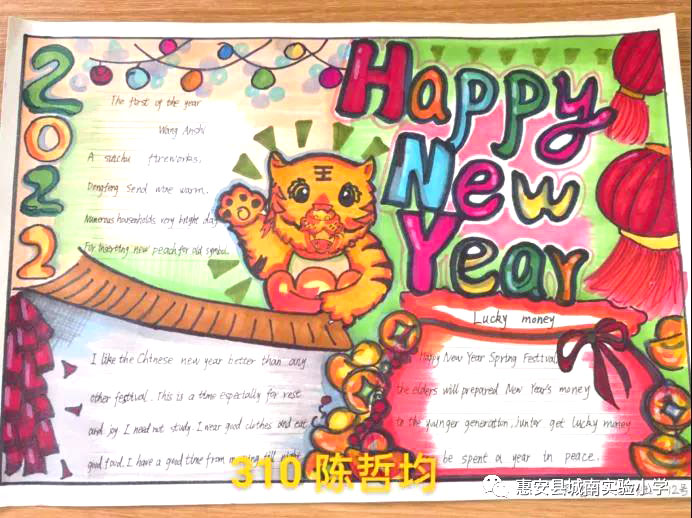 2022
Happy
New
Year
The first of the year
Wang Anshi
A suichu fireworks,
Dongfeng send wine warm.
Numerous households very bright day
For inserting new peach for old symbol.
王
I like the Chinese new year better than any
other festival. This is a time especially for rest
and joy. I need not study. I wear good clothes and eat
good food. I have a good time from morning till night
Lucky money
Happy New Year Spring Festival
the elders will prepared New Year's money
to the younger generation, junior get lucky money
be spent a year in peace.
310 陈哲均
惠安县城南实验小学
2号